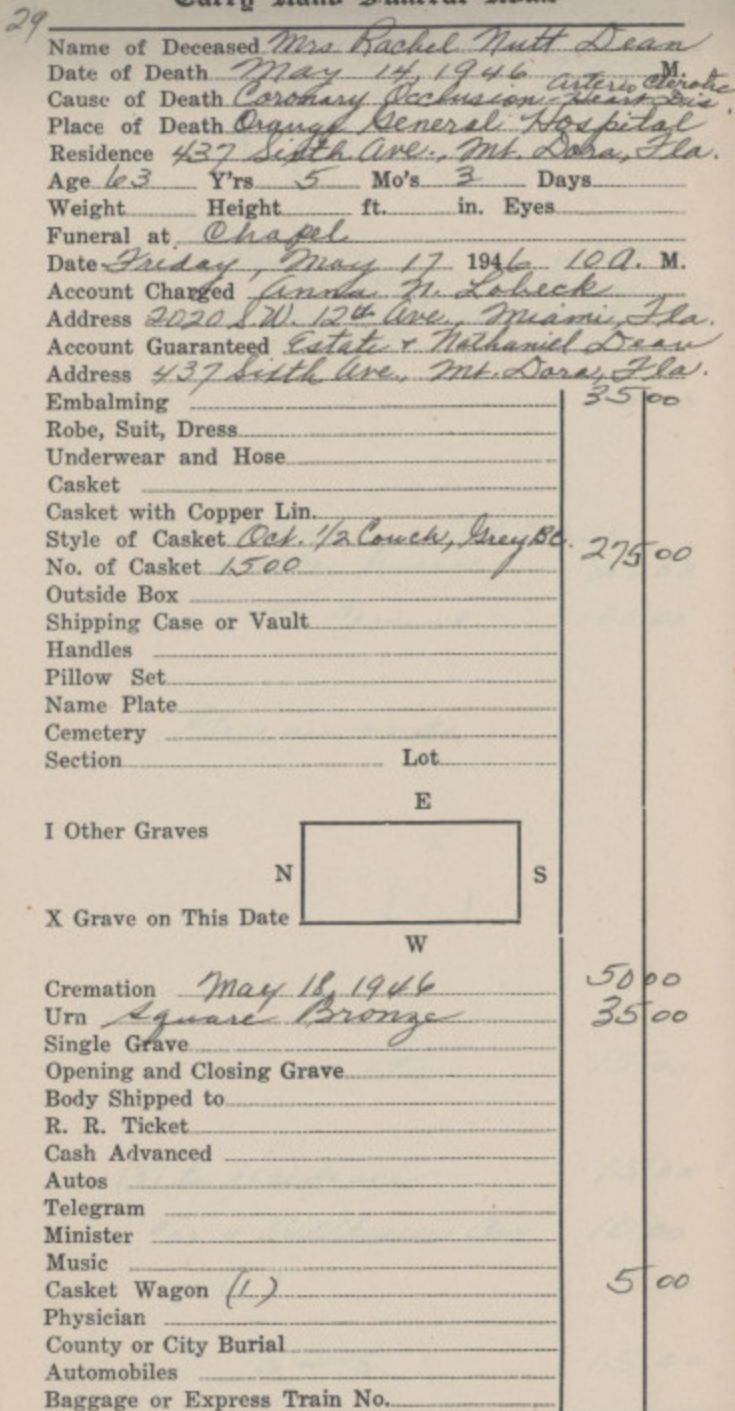 29
Carry Hand Funeral Home
Name of Deceased Mrs Rachel Nutt Dean
Date of Death May 14, 1946 M.
Arterio Clerotic
Cause of Death Coronary Occlusion - Heart Dis.
Place of Death Orange General Hospital
Residence 437 Sixth Ave., Mt. Dora, Fla.
Age 63 Y'rs 5 Mo's 3 Days
Weight Height ft. in. Eyes
Funeral at Chapel
Date Friday, May 17 1946 10 A. M.
Account Charged Anna N. Lobeck
Address 2020 S.W. 12th Ave., Miami, Fla.
Account Guaranteed Estate & Nathaniel Dean
Address 437 Sixth Ave., Mt. Dora, Fla.
Embalming 35 00
Robe, Suit, Dress
Underwear and Hose
Casket
Casket with Copper Lin.
Style of Casket Oct. 1/2 Couch, Grey BC. 275 00
No. of Casket 1500
Outside Box
Shipping Case or Vault
Handles
Pillow Set
Name Plate
Cemetery
Section Lot
E
I Other Graves
N S
X Grave on This Date
W
Cremation May 18, 1946 50 00
Urn Square Bronze 35 00
Single Grave
Opening and Closing Grave
Body Shipped to
R. R. Ticket
Cash Advanced
Autos
Telegram
Minister
Music
Casket Wagon (1) 5 00
Physician
County or City Burial
Automobiles
Baggage or Express Train No.